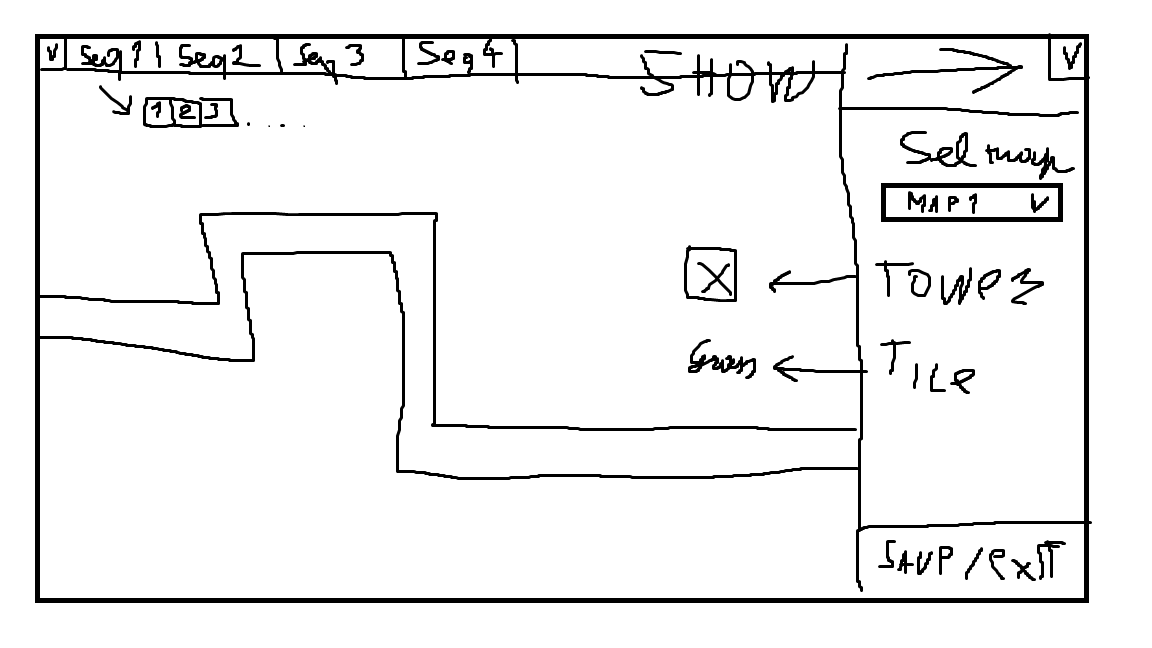 V Seq 1 Seq 2 Seq 3 Seq 4 SHOW V
1 2 3 . . . .
Sel map
MAP 1 V
X TOWER
Grass TILE
SAVE / EXIT